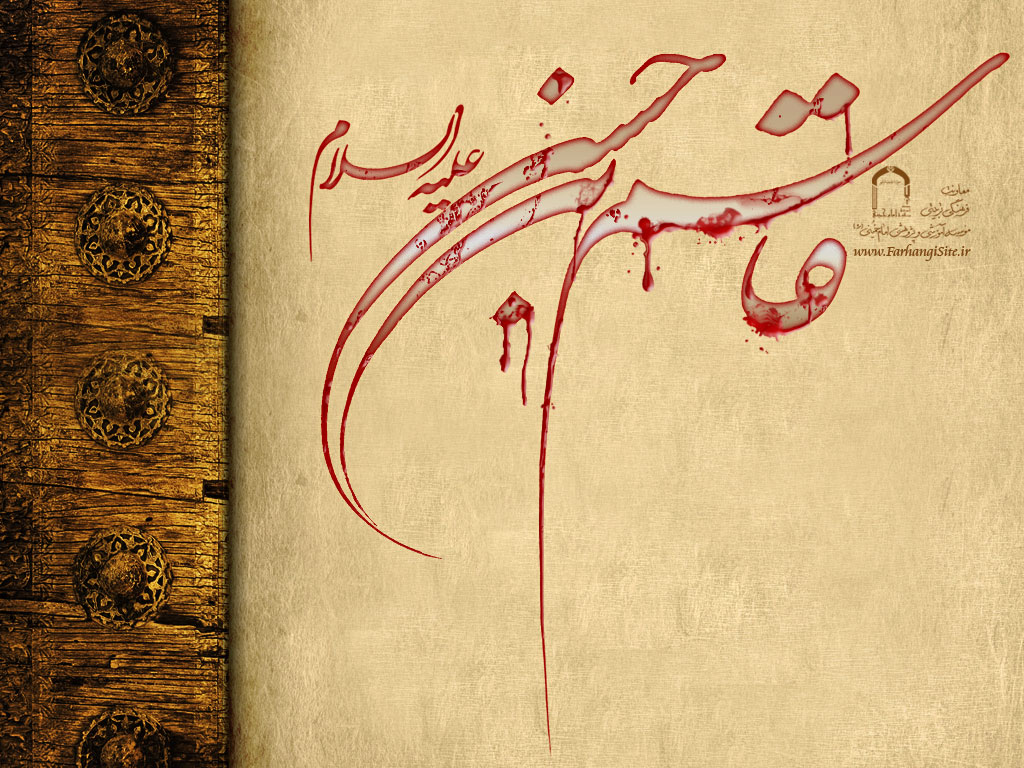 قاسم بن حسن
علیه السلام
معاونت
فرهنگی تربیتی
موسسه آموزشی و پژوهشی امام خمینی (ره)
www.FarhangiSite.ir